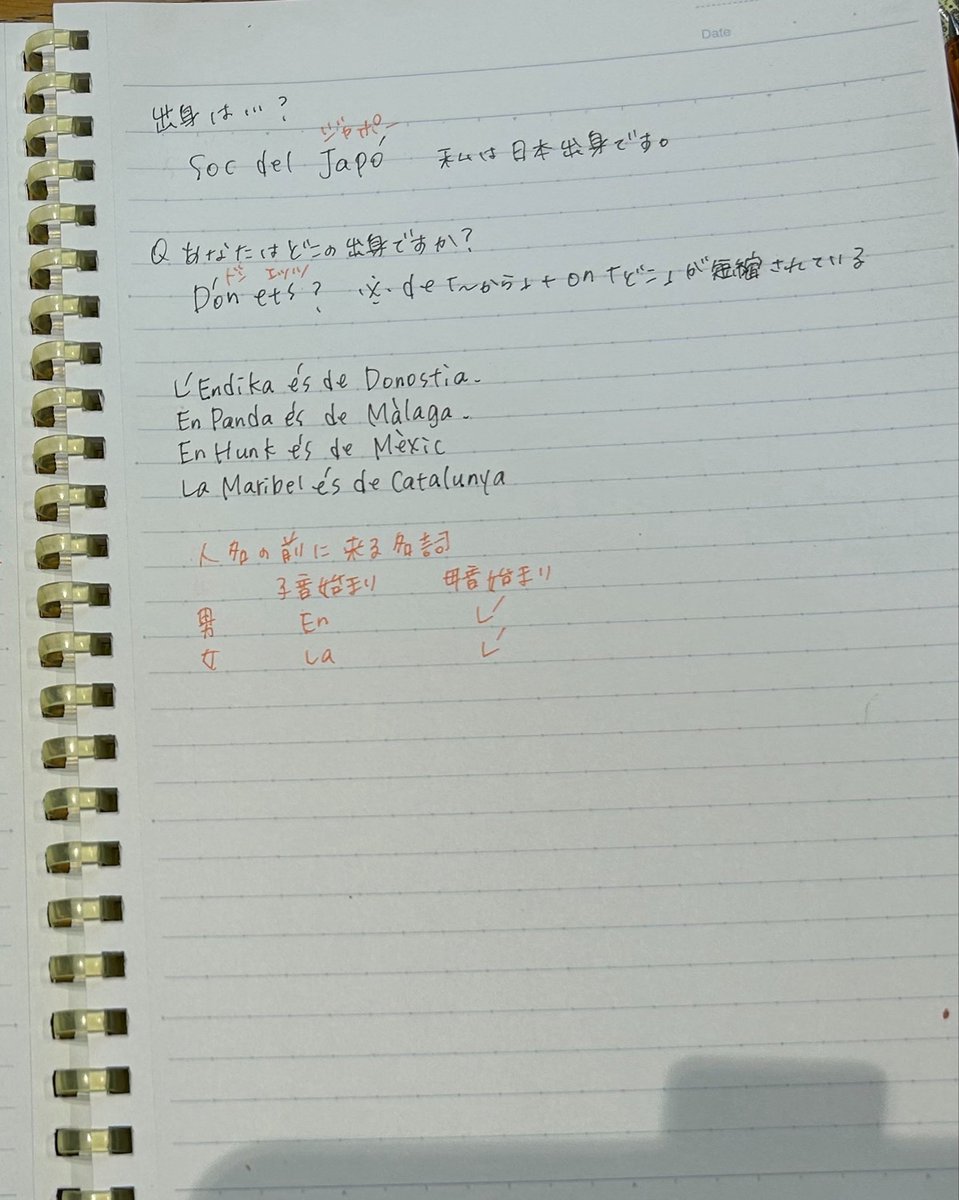 Date
出身は…?
ジャポー
Soc del Japó 私は日本出身です。
Q あなたはどこの出身ですか?
ドン エッツ
D'ón ets? ※ de「~から」+ on「どこ」が短縮されている
L'Endika és de Donostia.
En Panda és de Màlaga.
En Hunk és de Mèxic
La Maribel és de Catalunya
人名の前に来る名詞
子音始まり 母音始まり
男 En L'
女 La L'